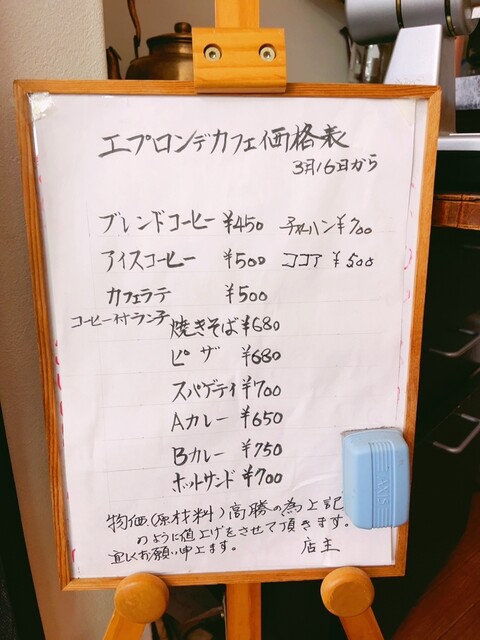 エプロンデカフェ価格表
3月16日から
ブレンドコーヒー ¥450 チャーハン ¥700
アイスコーヒー ¥500 ココア ¥500
カフェラテ ¥500
コーヒー付ランチ 焼きそば ¥680
ピザ ¥680
スパゲティ ¥700
Aカレー ¥650
Bカレー ¥750
ホットサンド ¥700
物価(原材料)高騰の為上記
のように値上げをさせて頂きます。
宜しくお願い申上ます。 店主